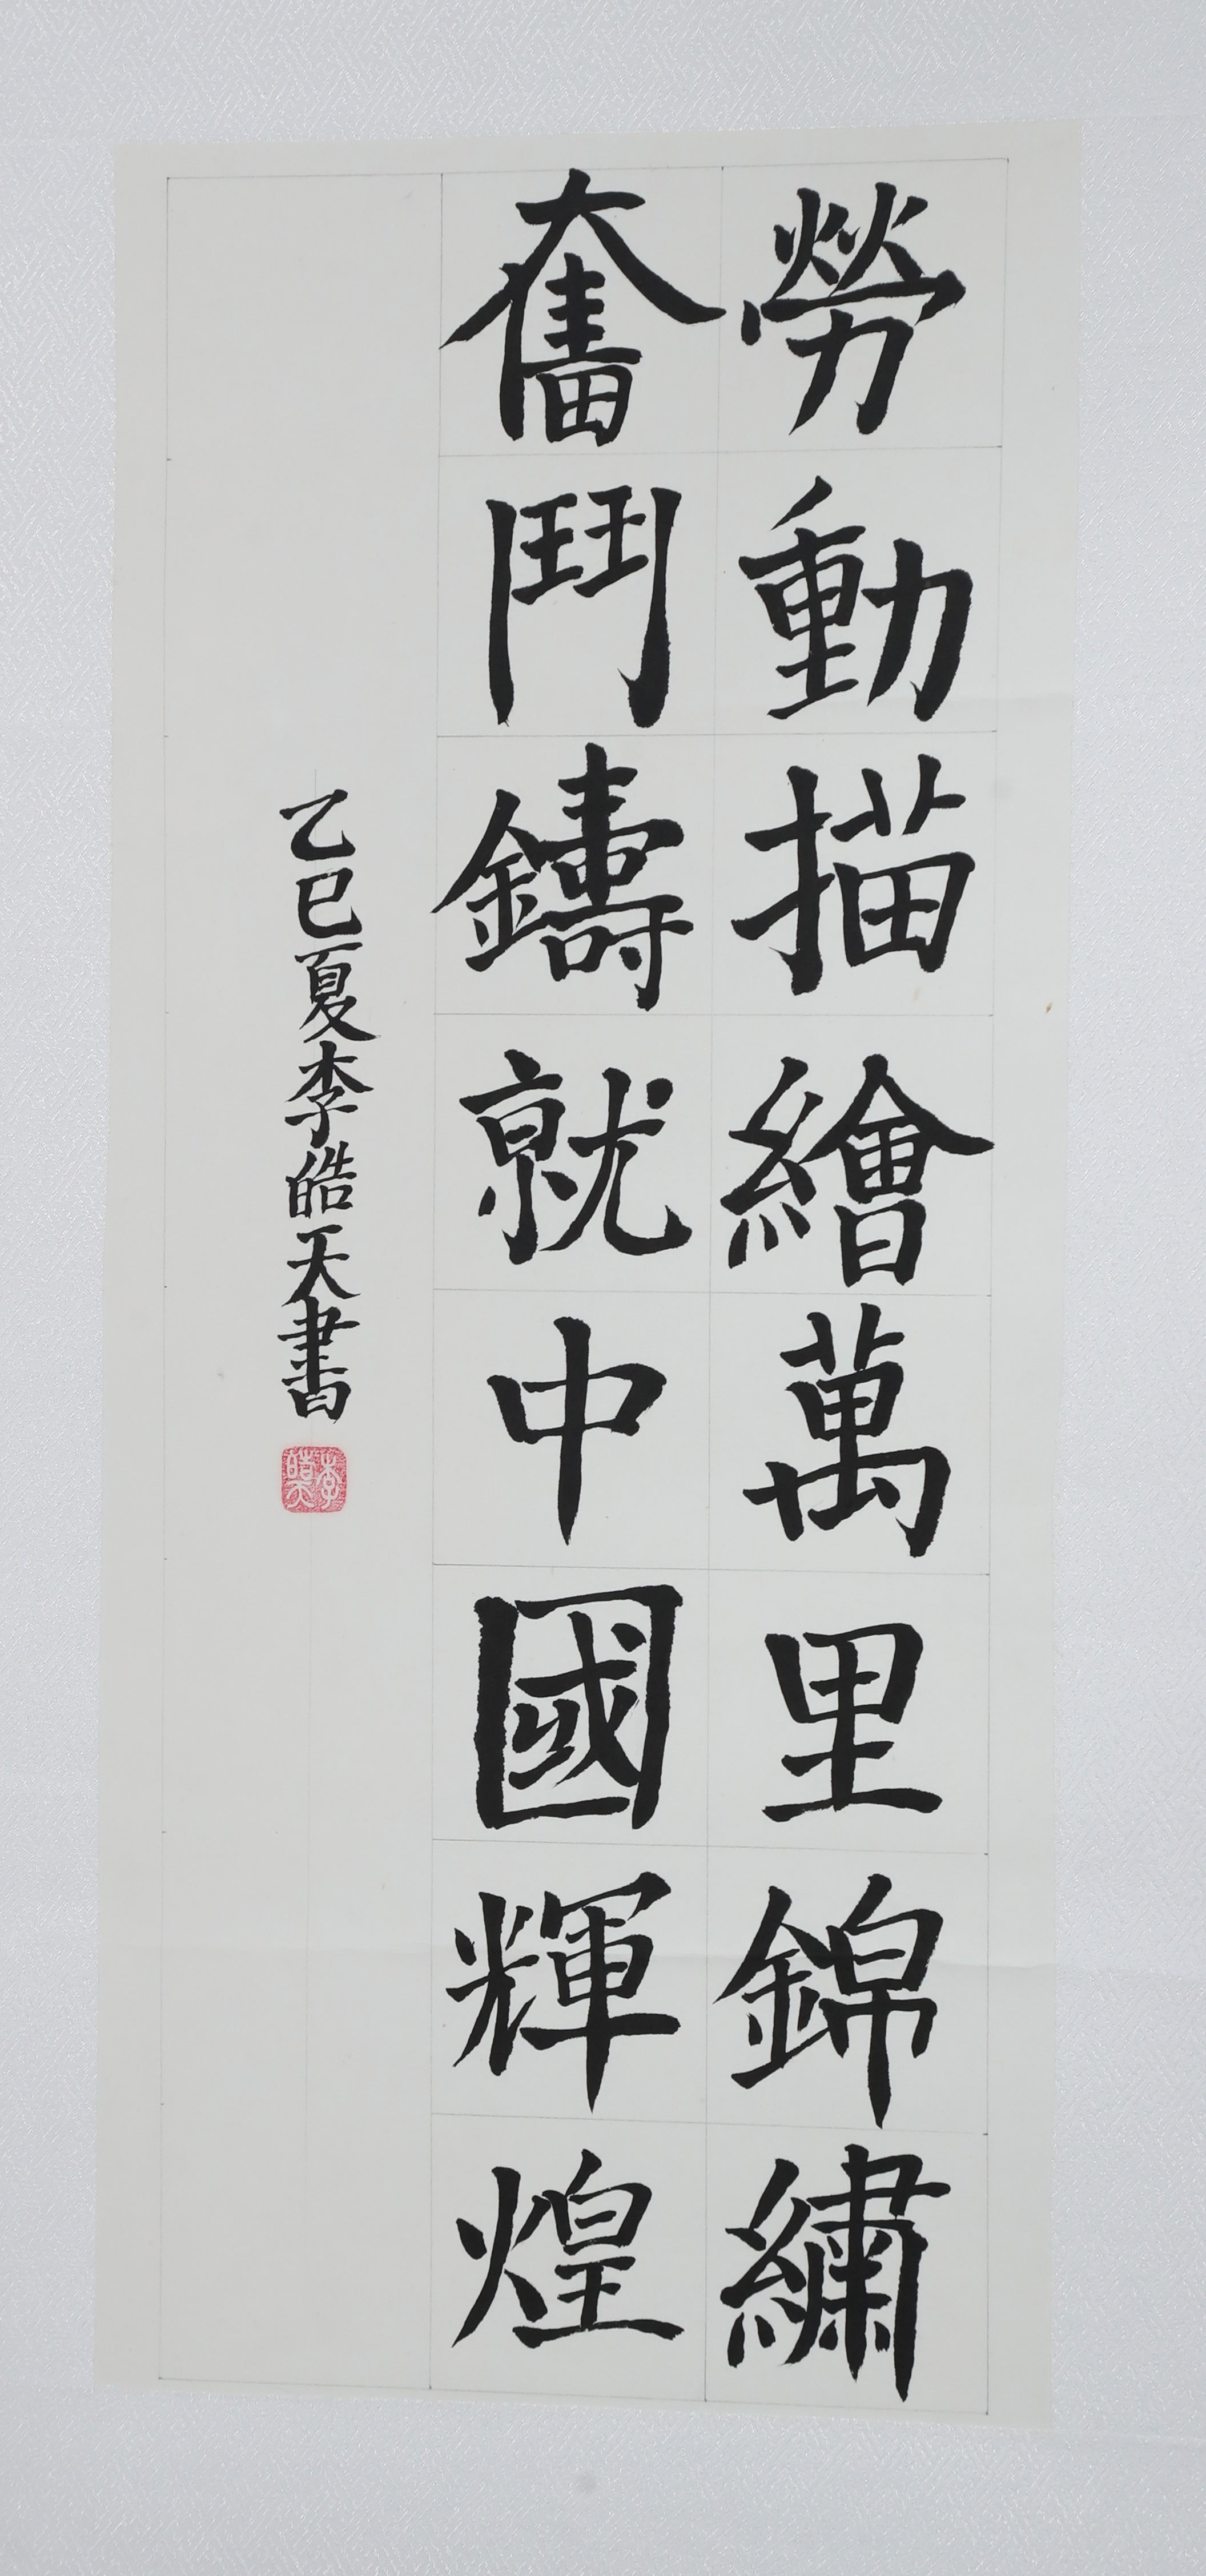 勞動描繪萬里錦繡
奮鬥鑄就中國輝煌
乙巳夏李皓天書
李皓天